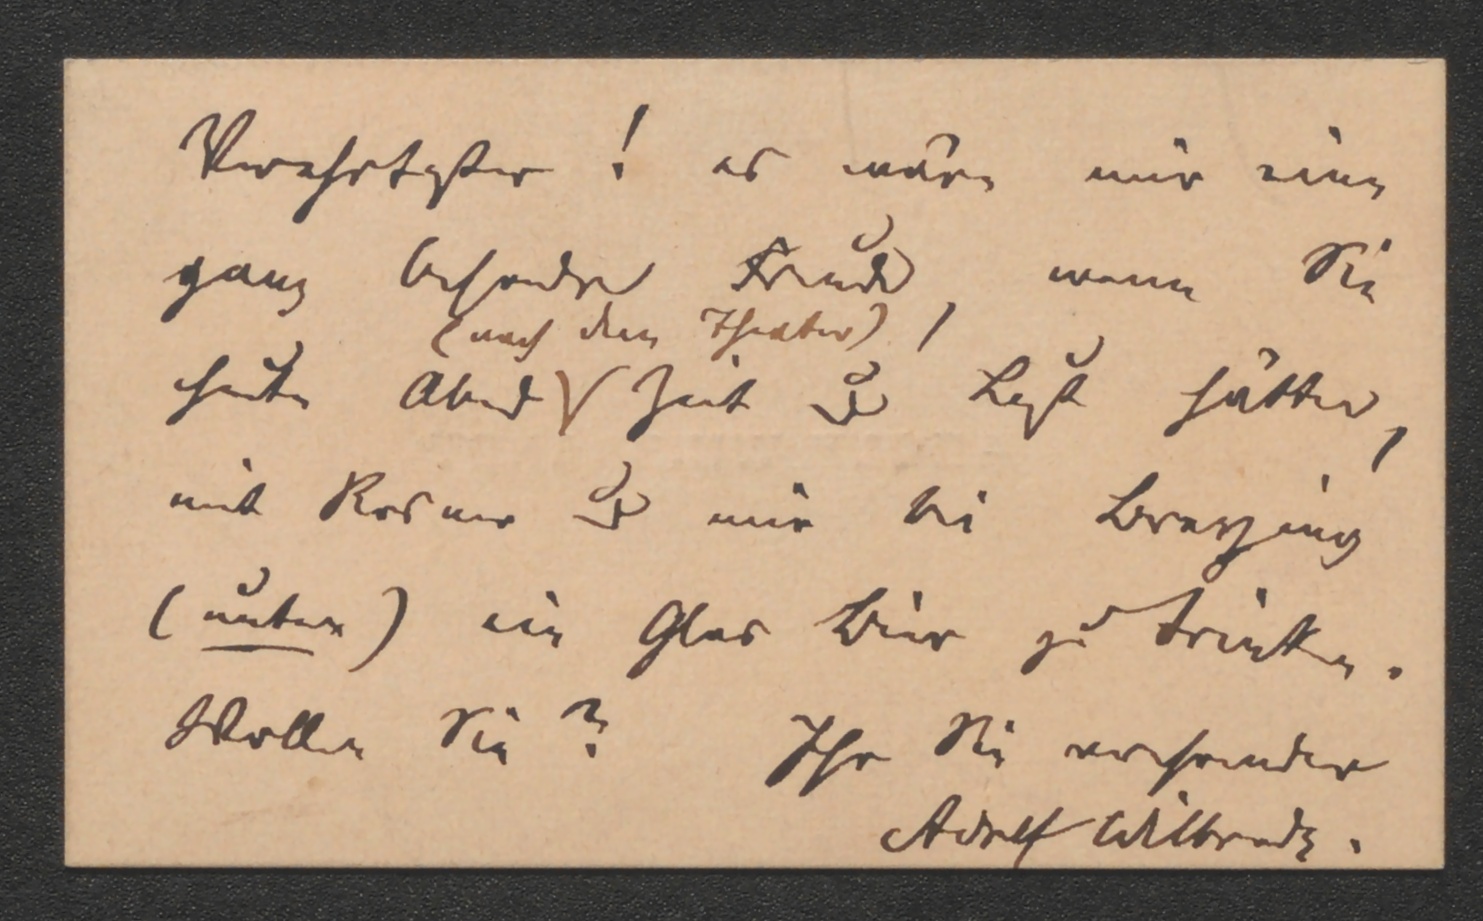 Verehrtester! es wäre mir eine
ganz besondre Freude, wenn Sie
(nach dem Theater)
heute Abend Zeit u Lust hätten,
mit Rosner u mir bei Breying
(unten) ein Glas Bier zu trinken.
Wollen Sie? Ihr Sie verehrender
Adolf Wilbrandt.